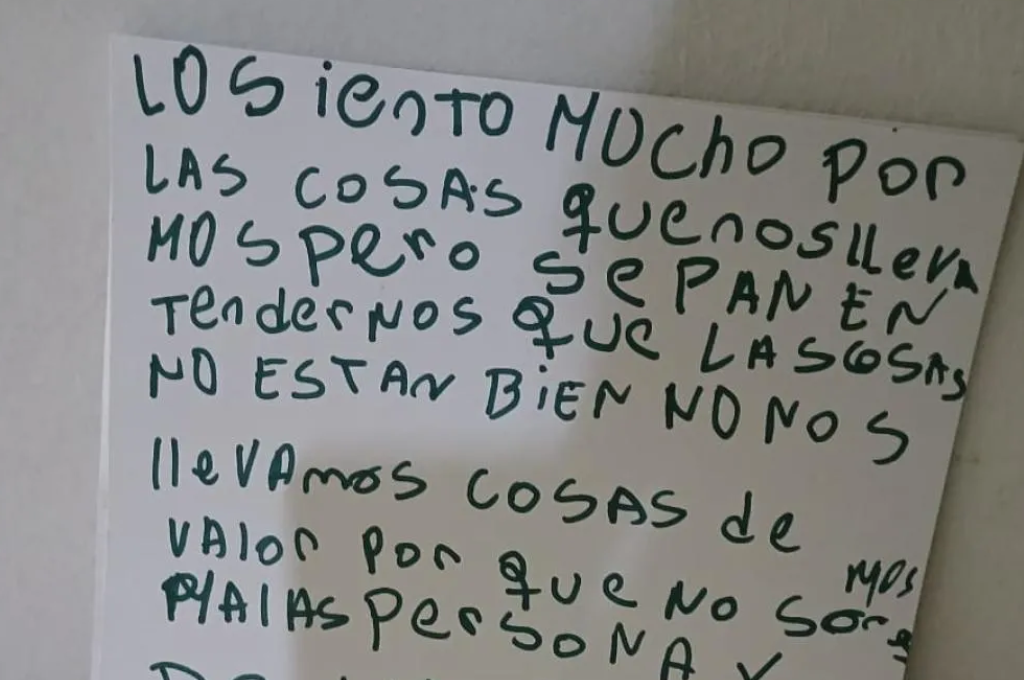 LO Siento MUCho Por
LAS COSAS que nos lleva
MOS pero SePAN EN
TenderNOS QUE LAS COSAS
NO ESTAN BiEN NO NOS
llevAmos COSAS de
VAlor Por que No somos
MAlAS PerSONA Y